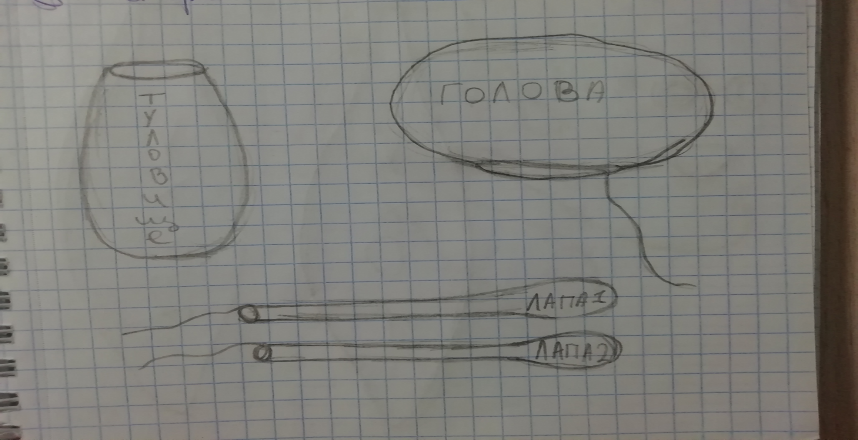 ТУЛОВИЩЕ
ГОЛОВА
ЛАПА1
ЛАПА2